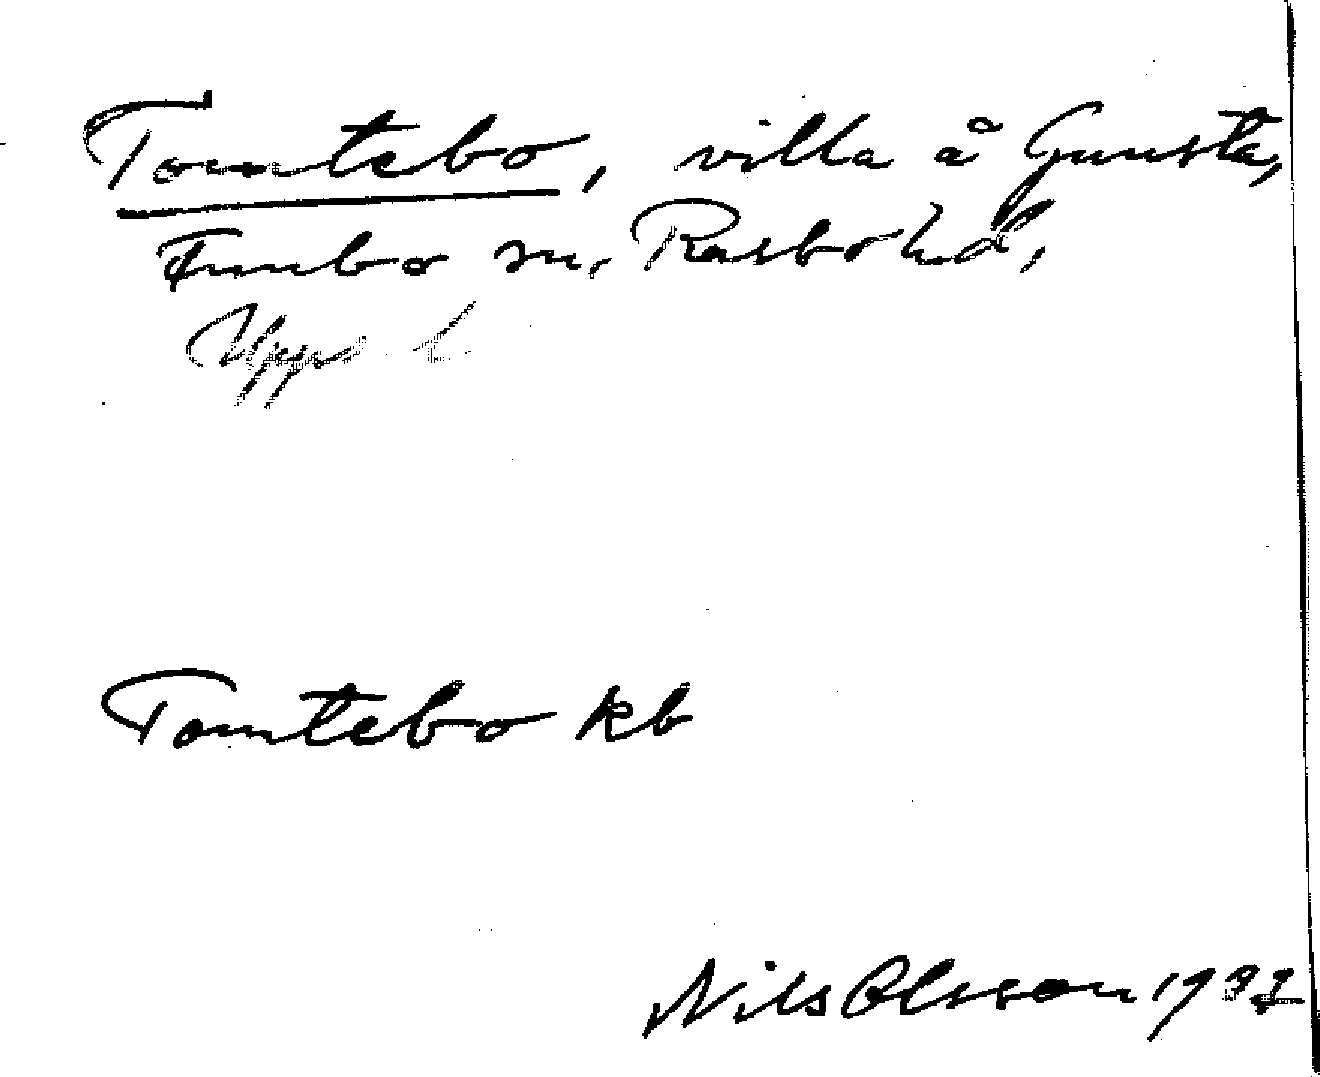 Tomtebo, villa å Gunsta,
Funbo sn, Rasbo hd,
Upps l.
Tomtebo kb
Nils Olsson